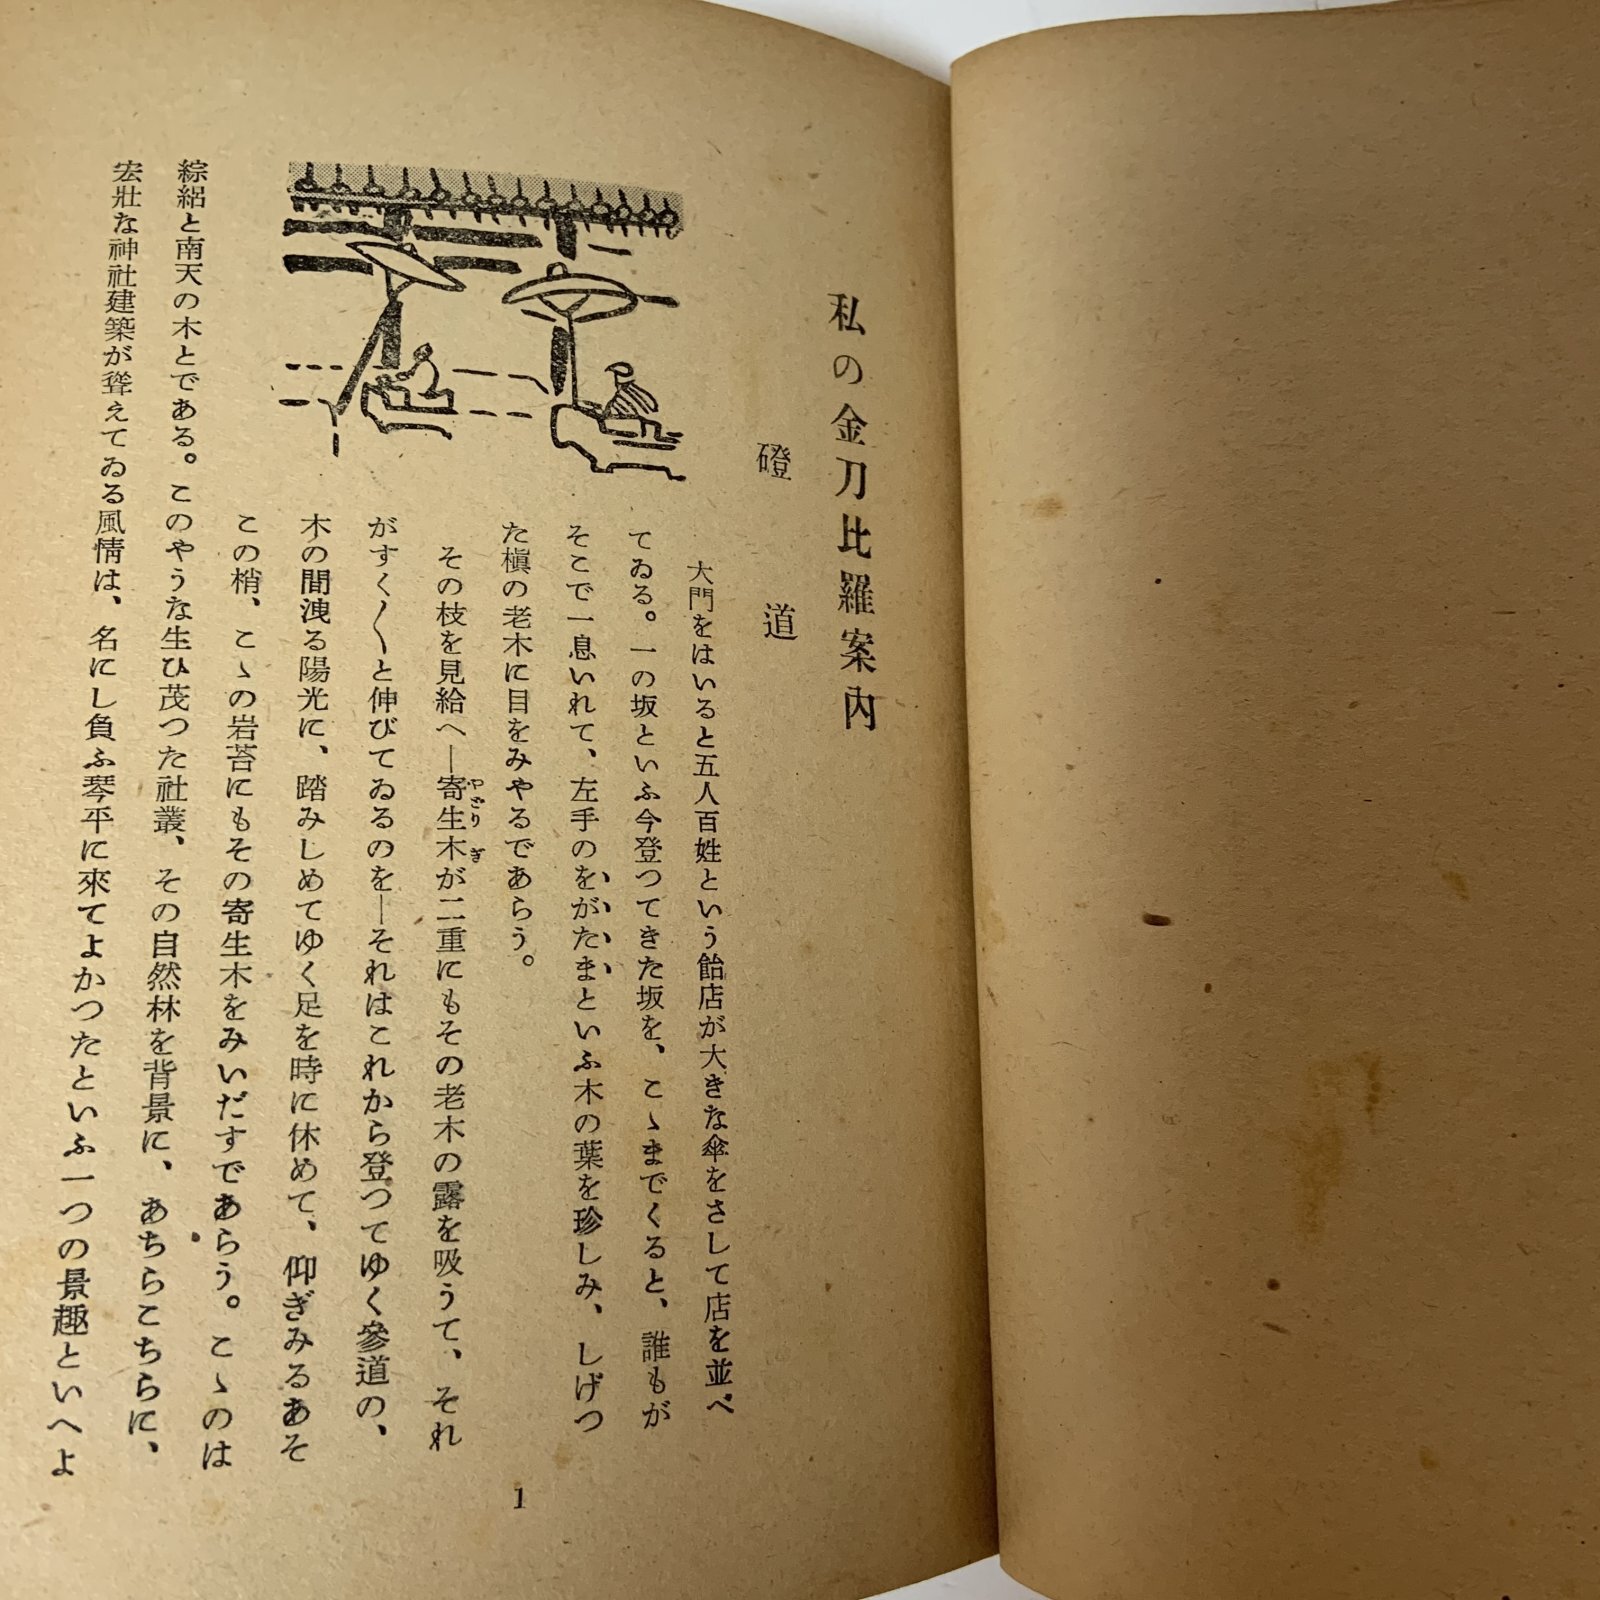 私の金刀比羅案內
磴道
大門をはいると五人百姓という飴店が大きな傘をさして店を並べ
てゐる。一の坂といふ今登つてきた坂を、こゝまでくると、誰もが
そこで一息いれて、左手のをがたまといふ木の葉を珍しみ、しげつ
た槇の老木に目をみやるであらう。
その枝を見給へ―寄生木が二重にもその老木の露を吸うて、それ
やどりぎ
がすく〱と伸びてゐるのを―それはこれから登つてゆく參道の、
木の間洩る陽光に、踏みしめてゆく足を時に休めて、仰ぎみるあそ
この梢、こゝの岩苔にもその寄生木をみいだすであらう。こゝのは
綜絽と南天の木とである。このやうな生ひ茂つた社叢、その自然林を背景に、あちらこちらに、
宏壯な神社建築が聳えてゐる風情は、名にし負ふ琴平に來てよかつたといふ一つの景趣といへよ
1